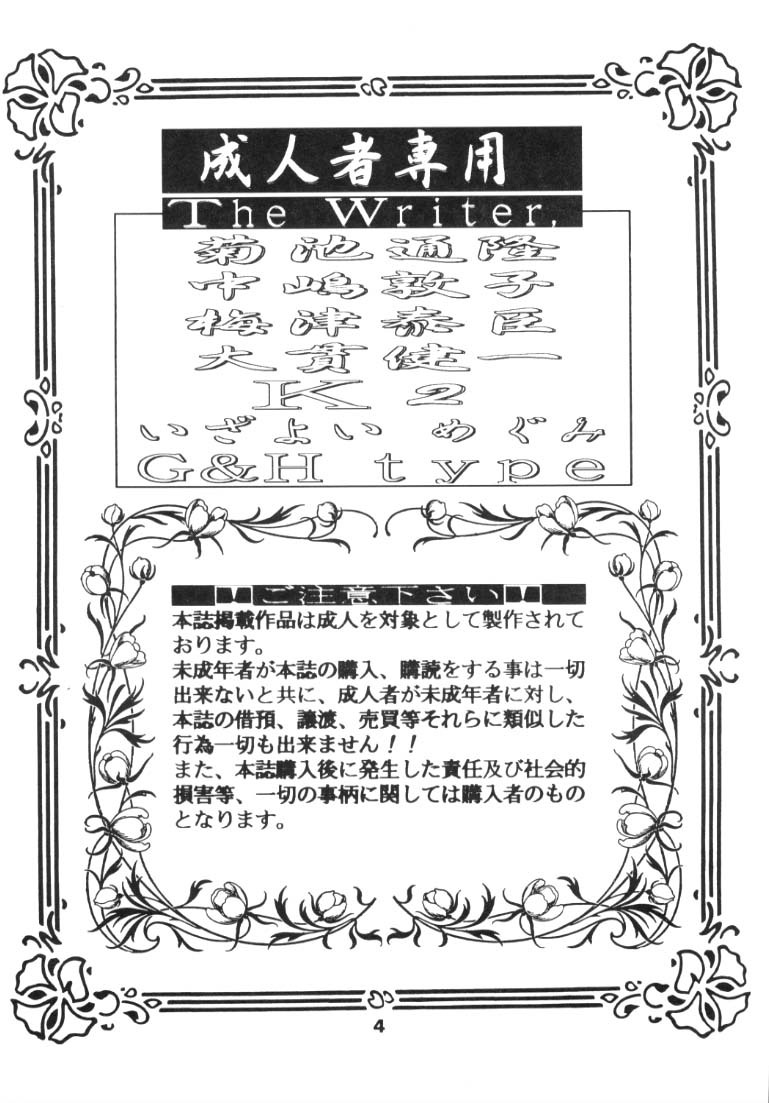 成人者専用
The Writer,
菊池通隆
中嶋敦子
梅津泰臣
大貫健一
K2
いざよい めぐみ
G&H type
ご注意下さい
本誌掲載作品は成人を対象として製作されて
おります。
未成年者が本誌の購入、購読をする事は一切
出来ないと共に、成人者が未成年者に対し、
本誌の借預、譲渡、売買等それらに類似した
行為一切も出来ません!!
また、本誌購入後に発生した責任及び社会的
損害等、一切の事柄に関しては購入者のもの
となります。
4